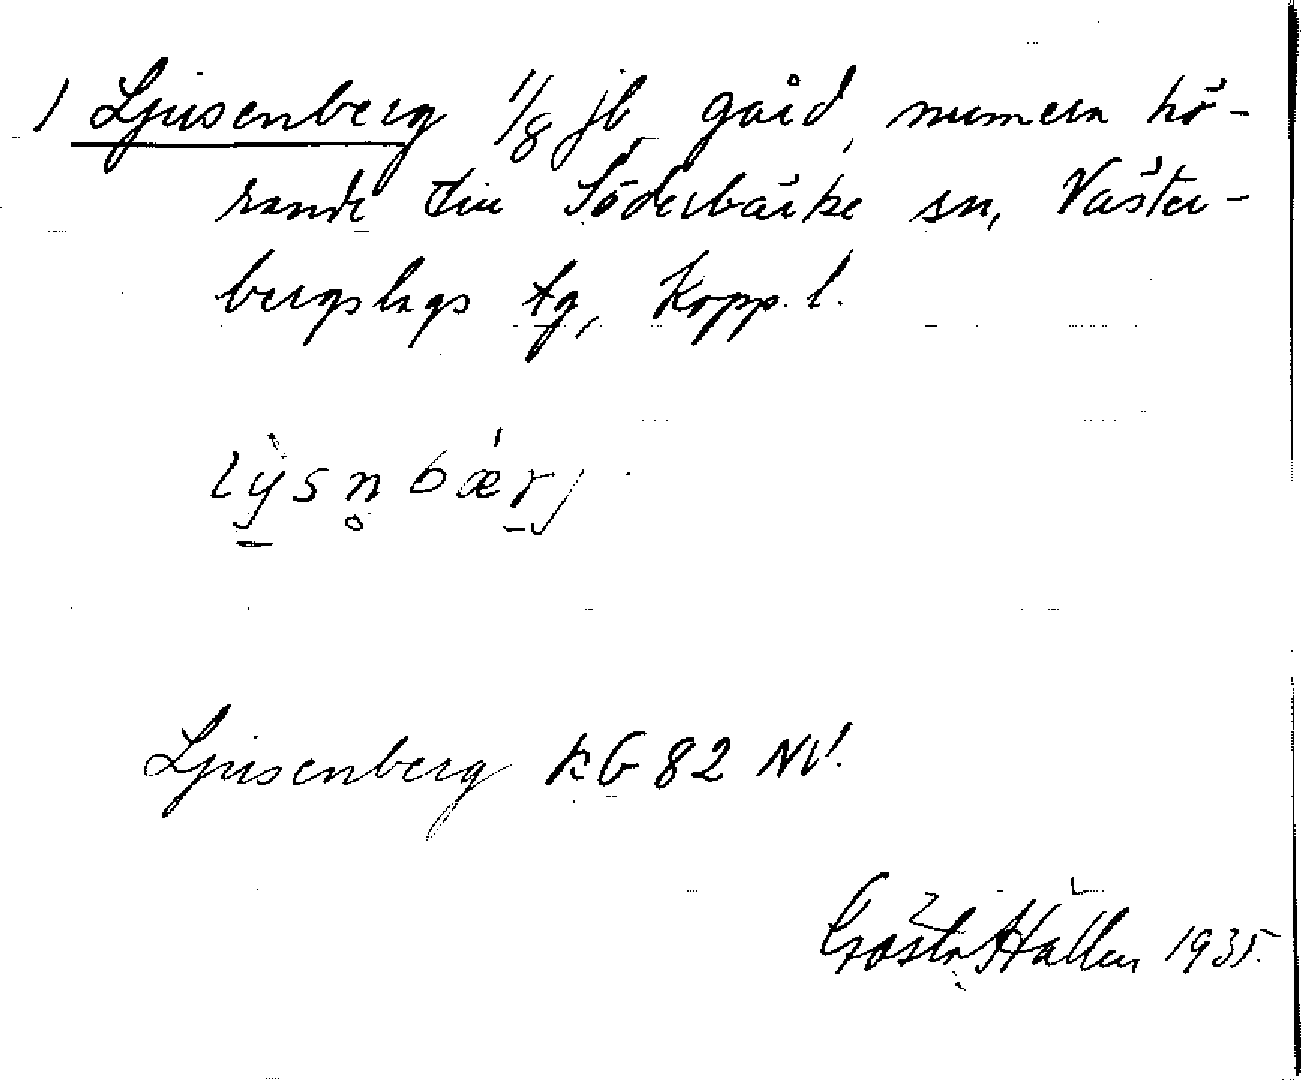 1 Ljusenberg 1/8 jb gård, numera hö-
rande till Söderbärke sn, Väster-
bergslags tg, Kopp. l.
lỳsn̥bǽrj
Ljusenberg KG 82 NV.
Gösta Hallen 1935.